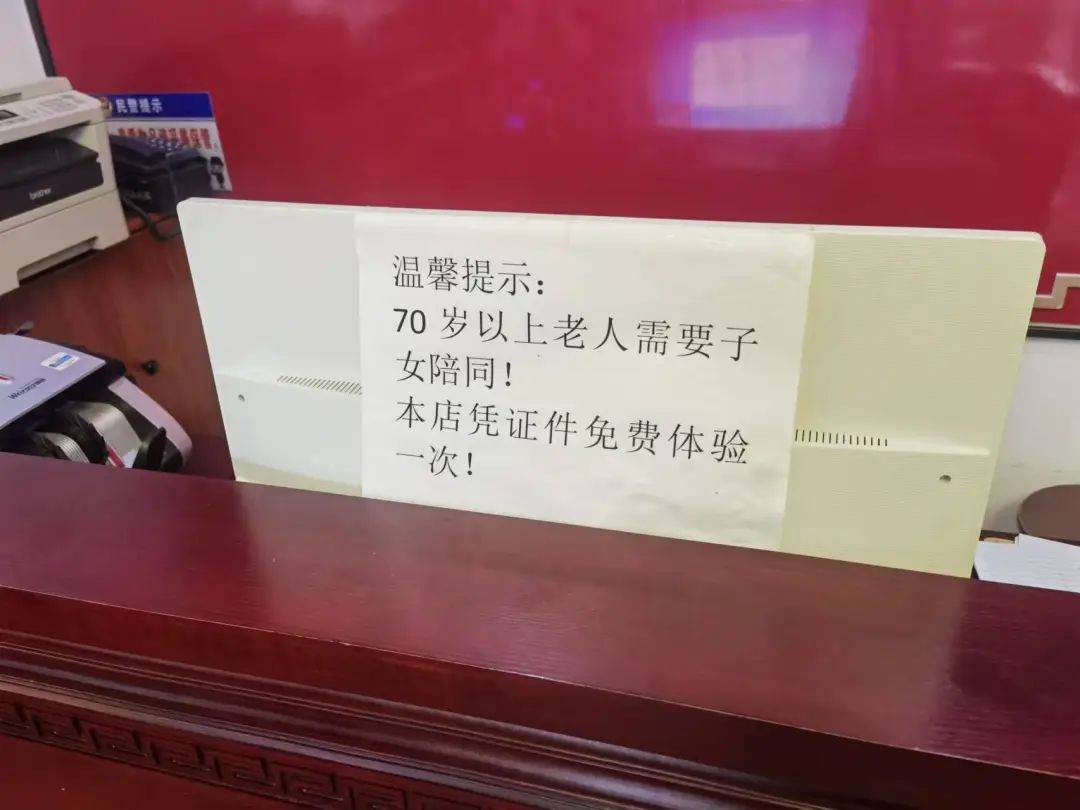 民警提示
brother
温馨提示：
70 岁以上老人需要子
女陪同！
本店凭证件免费体验
一次！